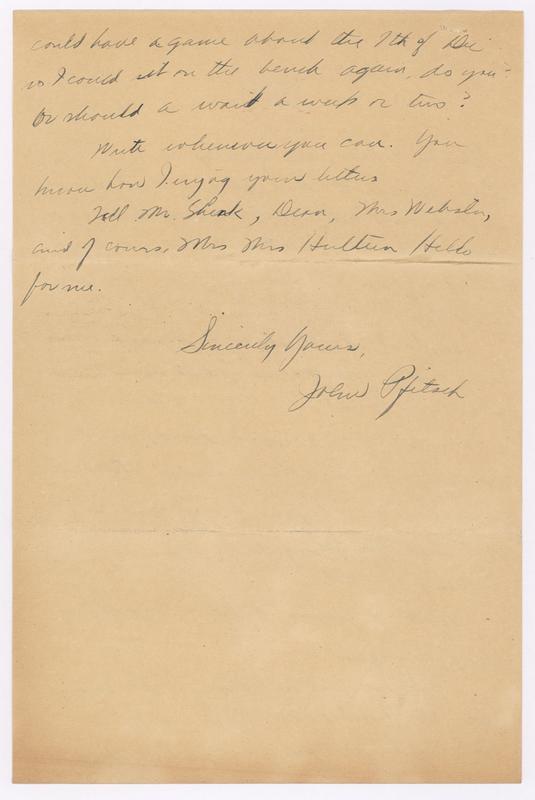 could have a game about the 7th of Dec
so I could sit on the bench again, do you?
Or should a wait a week or two?
Write whenever you can. You
know how I enjoy your letters
Tell Mr. Shenk, Dean, Mrs Webster,
and of course, Mrs Mrs Hultun Hello
for me.
Sincerely Yours,
John Pfitsch